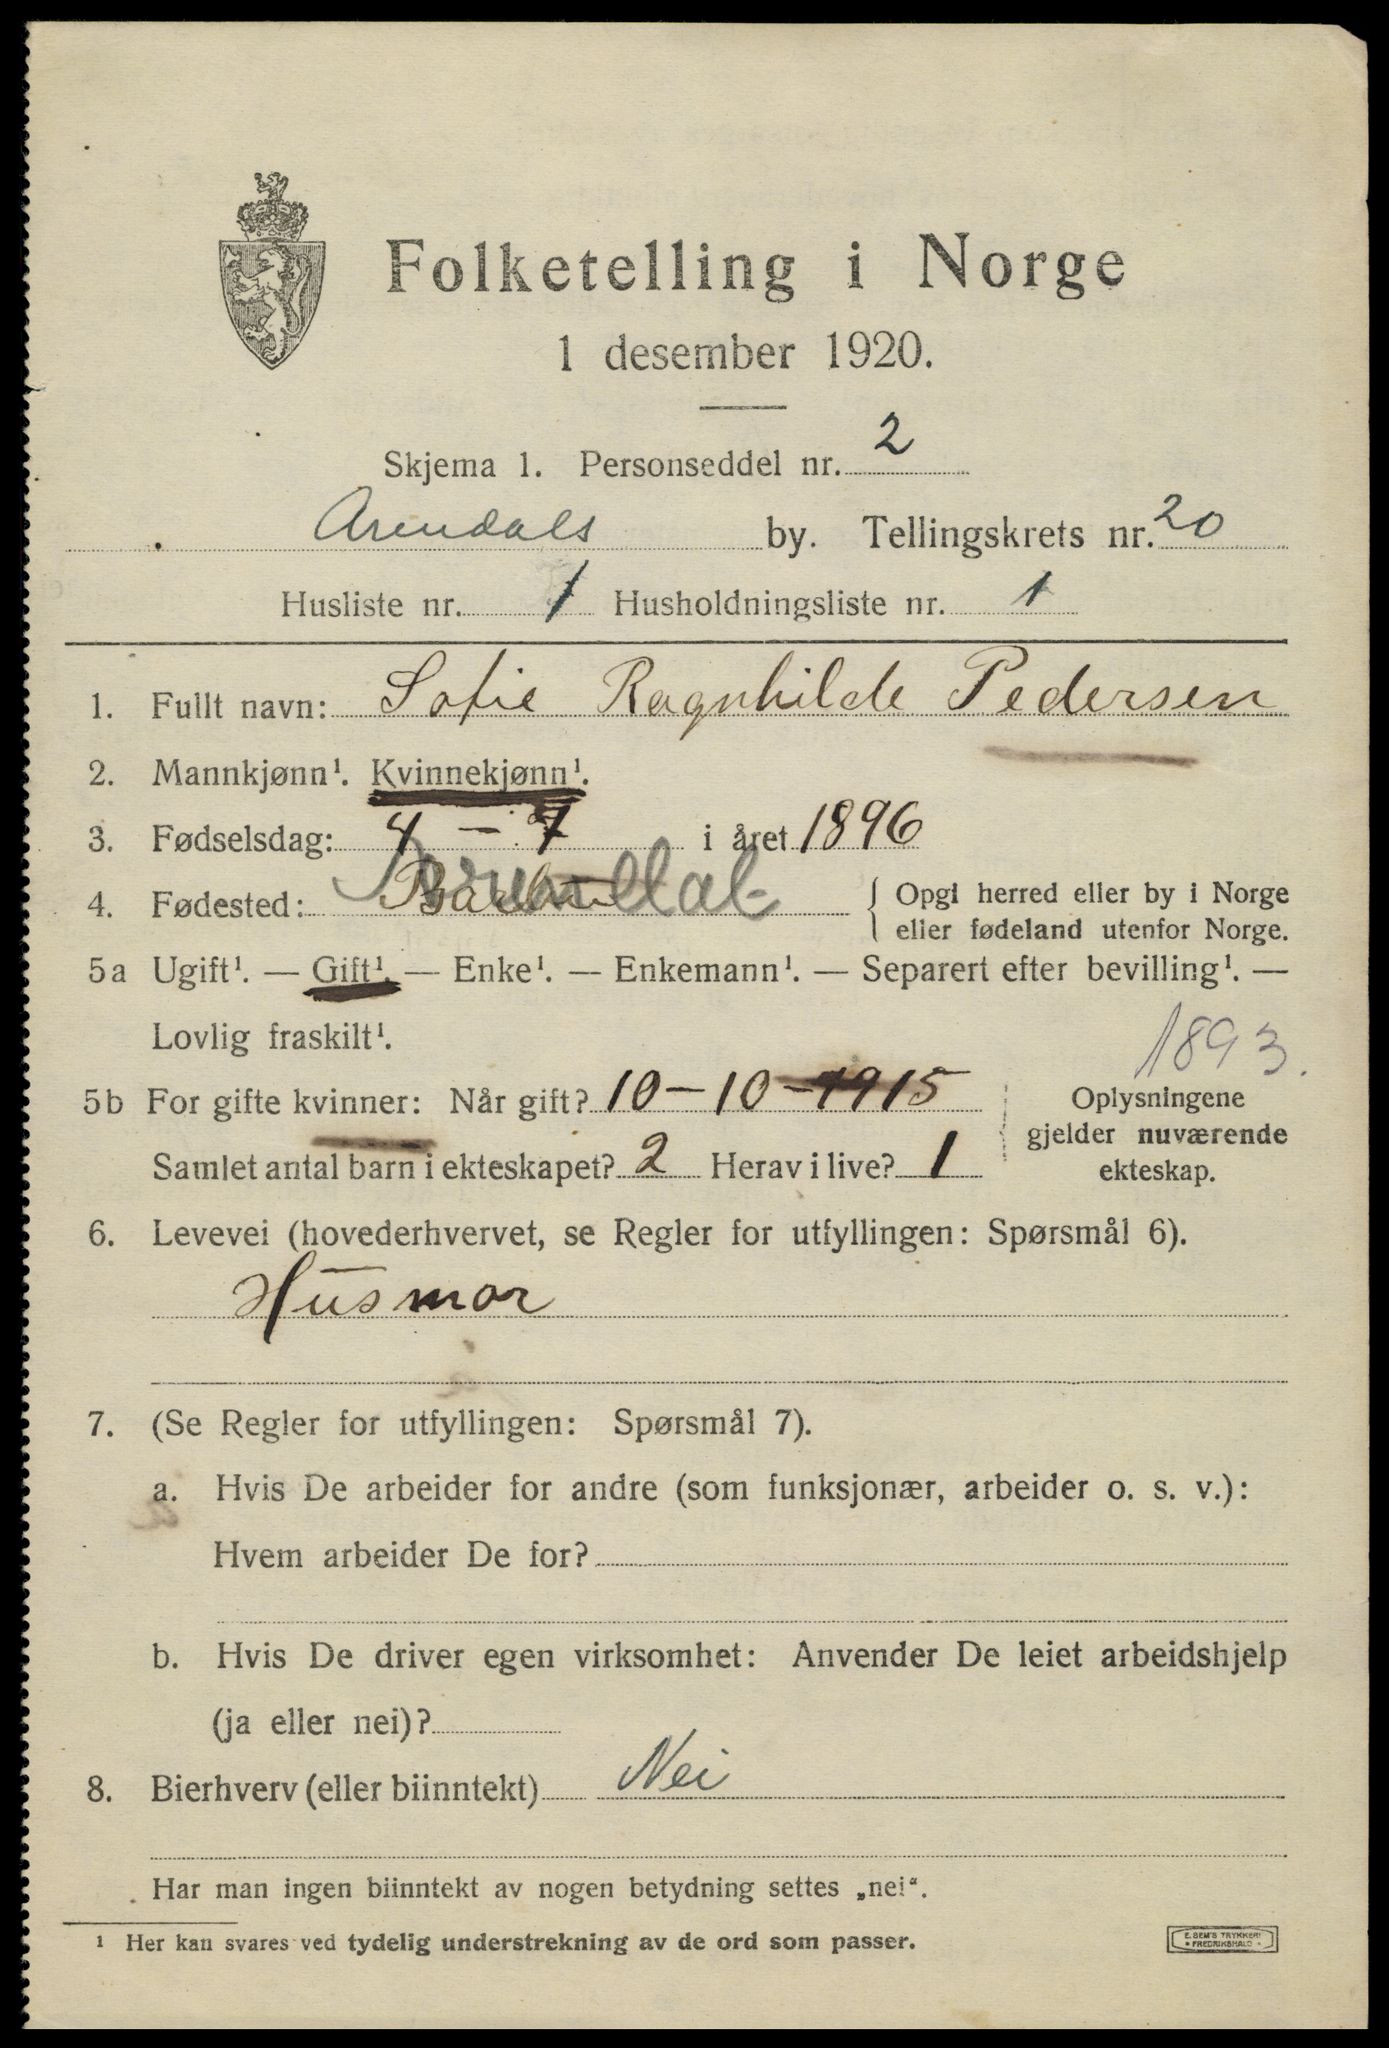 Folketelling i Norge
1 desember 1920.
Skjema 1. Personseddel nr. 2
Arendals by. Tellingskrets nr. 20
Husliste nr. 1 Husholdningsliste nr. 1
1. Fullt navn: Sofie Ragnhilde Pedersen
2. Mannkjønn¹. Kvinnekjønn¹.
3. Fødselsdag: 4 - 7 i året 1896
4. Fødested: Barbu Arendal { Opgi herred eller by i Norge
eller fødeland utenfor Norge.
5a Ugift¹. — Gift¹. — Enke¹. — Enkemann¹. — Separert efter bevilling¹. —
Lovlig fraskilt¹.
1893.
5b For gifte kvinner: Når gift? 10-10-1915 Oplysningene
gjelder nuværende
Samlet antal barn i ekteskapet? 2 Herav i live? 1 ekteskap.
6. Levevei (hovederhvervet, se Regler for utfyllingen: Spørsmål 6).
Husmor
7. (Se Regler for utfyllingen: Spørsmål 7).
a. Hvis De arbeider for andre (som funksjonær, arbeider o. s. v.):
Hvem arbeider De for?
b. Hvis De driver egen virksomhet: Anvender De leiet arbeidshjelp
(ja eller nei)?
8. Bierhverv (eller biinntekt) Nei
Har man ingen biinntekt av nogen betydning settes „nei“.
¹ Her kan svares ved tydelig understrekning av de ord som passer.
E. SEM'S TRYKKERI
• FREDRIKSHALD •